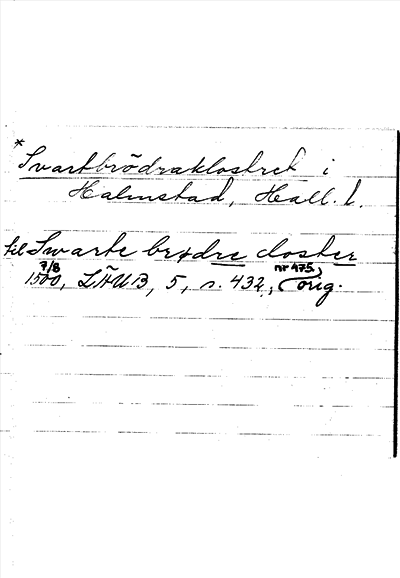 *Svartbrödraklostret i
Halmstad, Hall. l.
til Swarte brødre closter
7/8 nr 475,
1500, LÄUB, 5, s. 432, orig.